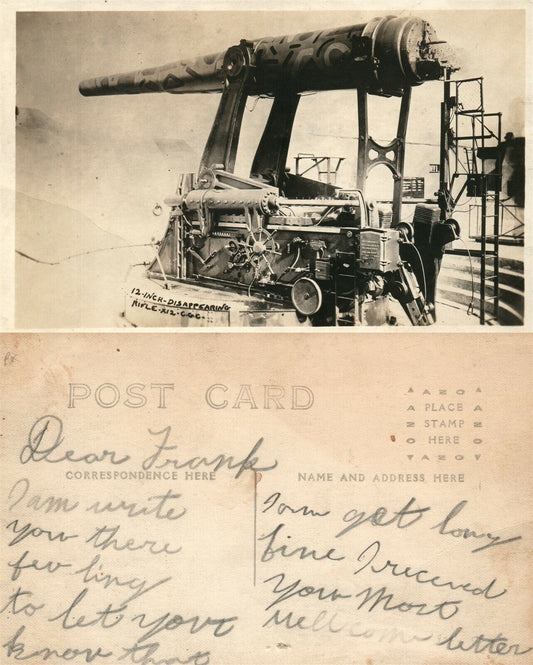 12-INCH-DISAPPEARING
RIFLE-X12-C.G.C-
POST CARD
AZOSA
PLACE
STAMP
HERE
AZOSA
CORRESPONDENCE HERE
NAME AND ADDRESS HERE
Dear Frank
I am write
you there
few ling
to let your
know that
I am get long
fine I receved
your Most
Well come letter